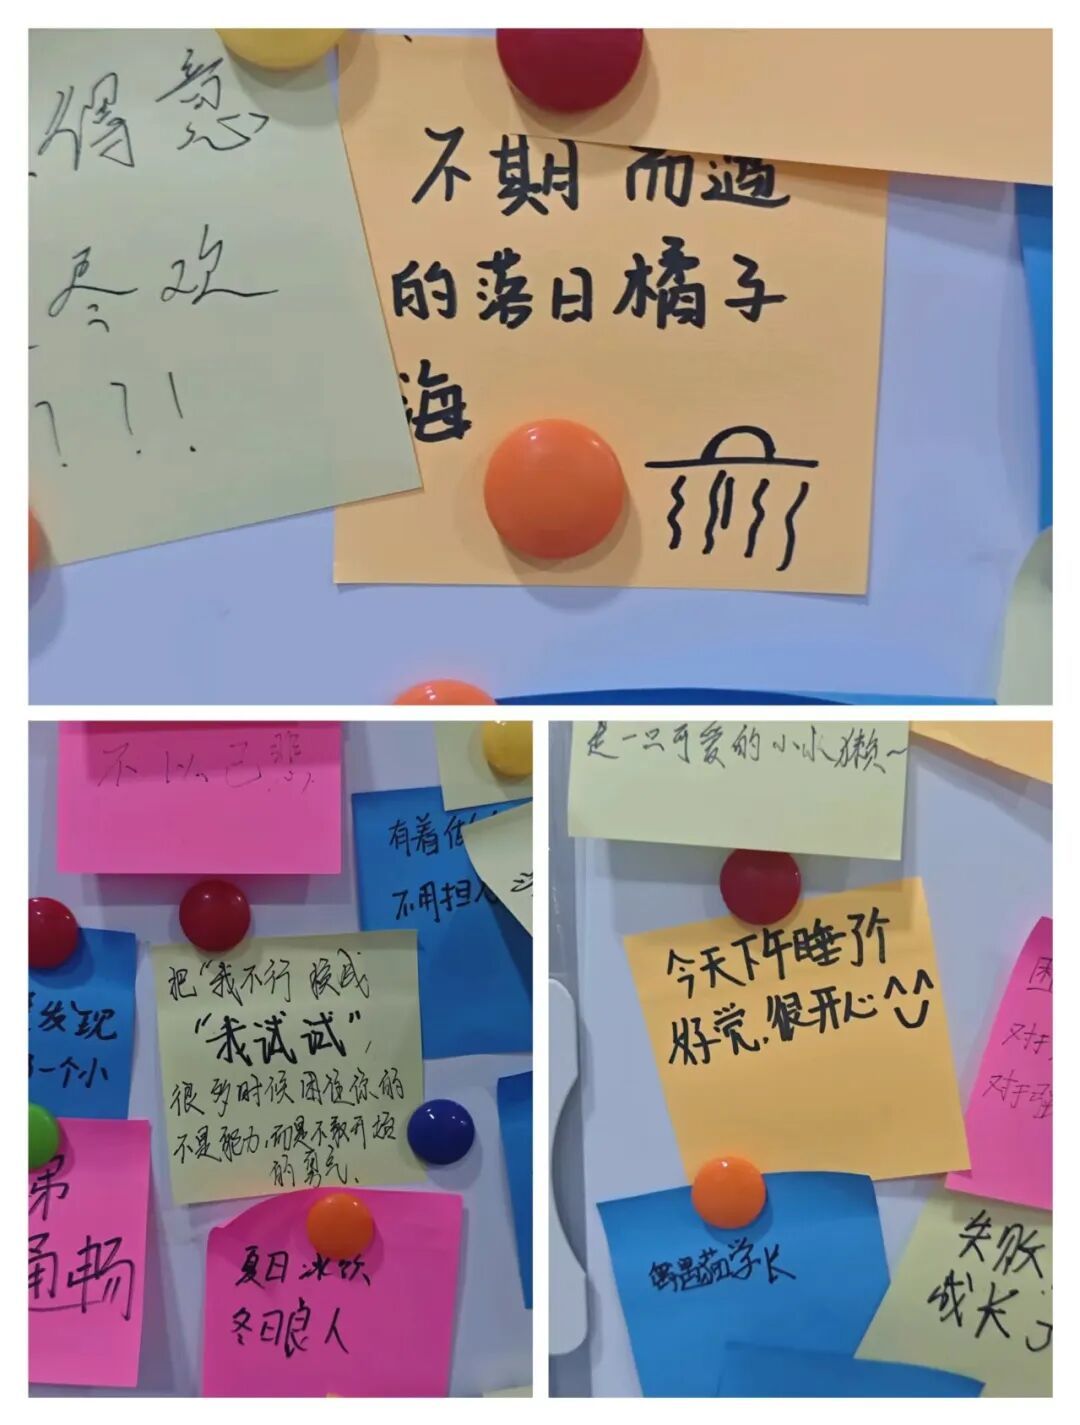 得意
尽欢
??!
不期而遇
的落日橘子
海
不以己悲
有着
不用担
发现
一个小
把“我不行换成
“我试试”，
很多时候困住你的
不是能力，而是不敢开始
的勇气.
弟
通畅
夏日冰饮
冬日良人
是一只可爱的小水獭～
今天下午睡了个
好觉，很开心^^
偶遇猫学长
困
对于
对于强
失败
成长